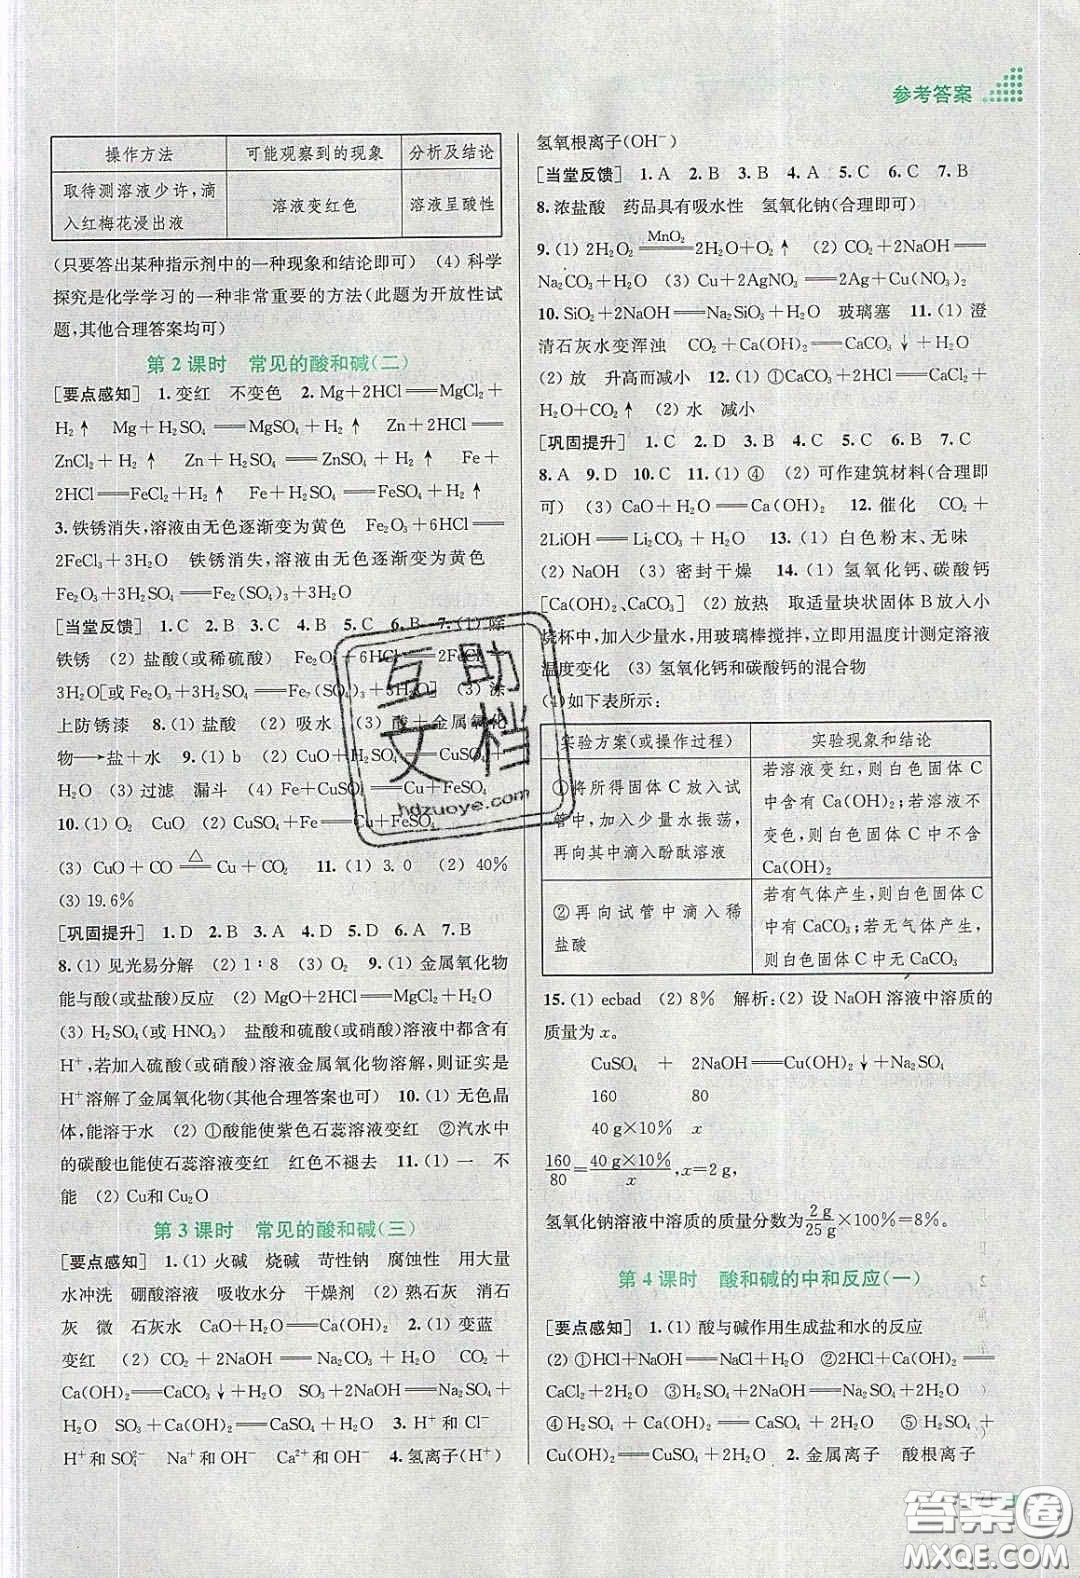 参考答案
操作方法 可能观察到的现象 分析及结论
取待测溶液少许,滴入红梅花浸出液 溶液变红色 溶液呈酸性
(只要答出某种指示剂中的一种现象和结论即可) (4) 科学
探究是化学学习的一种非常重要的方法(此题为开放性试
题,其他合理答案均可)
第 2 课时 常见的酸和碱(二)
[要点感知] 1. 变红 不变色 2. Mg+2HCl══MgCl₂+
H₂↑ Mg+H₂SO₄══MgSO₄+H₂↑ Zn+2HCl══
ZnCl₂+H₂↑ Zn+H₂SO₄══ZnSO₄+H₂↑ Fe+
2HCl══FeCl₂+H₂↑ Fe+H₂SO₄══FeSO₄+H₂↑
3. 铁锈消失,溶液由无色逐渐变为黄色 Fe₂O₃+6HCl══
2FeCl₃+3H₂O 铁锈消失,溶液由无色逐渐变为黄色
Fe₂O₃+3H₂SO₄══Fe₂(SO₄)₃+3H₂O
[当堂反馈] 1. C 2. B 3. C 4. B 5. C 6. B 7. (1) 除
铁锈 (2) 盐酸(或稀硫酸) Fe₂O₃+6HCl══2FeCl₃+
3H₂O[或Fe₂O₃+3H₂SO₄══Fe₂(SO₄)₃+3H₂O] (3) 涂
上防锈漆 8. (1) 盐酸 (2) 吸水 (3) 酸+金属氧化
物─→盐+水 9. (1) b (2) CuO+H₂SO₄══CuSO₄+
H₂O (3) 过滤 漏斗 (4) Fe+CuSO₄══Cu+FeSO₄
10. (1) O₂ CuO (2) CuSO₄+Fe══Cu+FeSO₄
(3) CuO+CO △══ Cu+CO₂ 11. (1) 3.0 (2) 40%
(3) 19.6%
[巩固提升] 1. D 2. B 3. A 4. D 5. D 6. A 7. B
8. (1) 见光易分解 (2) 1∶8 (3) O₂ 9. (1) 金属氧化物
能与酸(或盐酸)反应 (2) MgO+2HCl══MgCl₂+H₂O
(3) H₂SO₄(或 HNO₃) 盐酸和硫酸(或硝酸)溶液中都含有
H⁺,若加入硫酸(或硝酸)溶液金属氧化物溶解,则证实是
H⁺溶解了金属氧化物(其他合理答案也可) 10. (1) 无色晶
体,能溶于水 (2) ①酸能使紫色石蕊溶液变红 ②汽水中
的碳酸也能使石蕊溶液变红 红色不褪去 11. (1) 一 不
能 (2) Cu和 Cu₂O
第 3 课时 常见的酸和碱(三)
[要点感知] 1. (1) 火碱 烧碱 苛性钠 腐蚀性 用大量
水冲洗 硼酸溶液 吸收水分 干燥剂 (2) 熟石灰 消石
灰 微 石灰水 CaO+H₂O══Ca(OH)₂ 2. (1) 变蓝
变红 (2) CO₂+2NaOH══Na₂CO₃+H₂O CO₂+
Ca(OH)₂══CaCO₃↓+H₂O SO₃+2NaOH══Na₂SO₄+
H₂O SO₃+Ca(OH)₂══CaSO₄+H₂O 3. H⁺和 Cl⁻
H⁺和 SO₄²⁻ Na⁺和 OH⁻ Ca²⁺和 OH⁻ 4. 氢离子(H⁺)
氢氧根离子(OH⁻)
[当堂反馈] 1. A 2. B 3. B 4. A 5. C 6. C 7. B
8. 浓盐酸 药品具有吸水性 氢氧化钠(合理即可)
9. (1) 2H₂O₂ MnO₂══2H₂O+O₂↑ (2) CO₂+2NaOH══
Na₂CO₃+H₂O (3) Cu+2AgNO₃══2Ag+Cu(NO₃)₂
10. SiO₂+2NaOH══Na₂SiO₃+H₂O 玻璃塞 11. (1) 澄
清石灰水变浑浊 CO₂+Ca(OH)₂══CaCO₃↓+H₂O
(2) 放 升高而减小 12. (1) ①CaCO₃+2HCl══CaCl₂+
H₂O+CO₂↑ (2) 水 减小
[巩固提升] 1. C 2. D 3. D 4. C 5. C 6. B 7. C
8. A 9. D 10. C 11. (1) ④ (2) 可作建筑材料(合理即
可) (3) CaO+H₂O══Ca(OH)₂ 12. 催化 CO₂+
2LiOH══Li₂CO₃+H₂O 13. (1) 白色粉末、无味
(2) NaOH (3) 密封干燥 14. (1) 氢氧化钙、碳酸钙
[Ca(OH)₂、CaCO₃] (2) 放热 取适量块状固体 B 放入小
烧杯中,加入少量水,用玻璃棒搅拌,立即用温度计测定溶液
温度变化 (3) 氢氧化钙和碳酸钙的混合物
(4) 如下表所示:
实验方案(或操作过程) 实验现象和结论
①将所得固体 C 放入试管中,加入少量水振荡,再向其中滴入酚酞溶液 若溶液变红,则白色固体 C 中含有 Ca(OH)₂;若溶液不变色,则白色固体 C 中不含 Ca(OH)₂
②再向试管中滴入稀盐酸 若有气体产生,则白色固体 C 中有 CaCO₃;若无气体产生,则白色固体 C 中无 CaCO₃
15. (1) ecbad (2) 8% 解析:(2) 设 NaOH 溶液中溶质的
质量为 x。
CuSO₄ + 2NaOH══Cu(OH)₂↓+Na₂SO₄
160 80
40 g×10% x
160/80=40 g×10%/x,x=2 g,
氢氧化钠溶液中溶质的质量分数为2 g/25 g×100%=8%。
第 4 课时 酸和碱的中和反应(一)
[要点感知] 1. (1) 酸与碱作用生成盐和水的反应
(2) ①HCl+NaOH══NaCl+H₂O ②2HCl+Ca(OH)₂══
CaCl₂+2H₂O ③H₂SO₄+2NaOH══Na₂SO₄+2H₂O
④ H₂SO₄+Ca(OH)₂══CaSO₄+2H₂O ⑤ H₂SO₄+
Cu(OH)₂══CuSO₄+2H₂O 2. 金属离子 酸根离子
互助文档
hdzuoye.com
答案圈
MXQE.COM